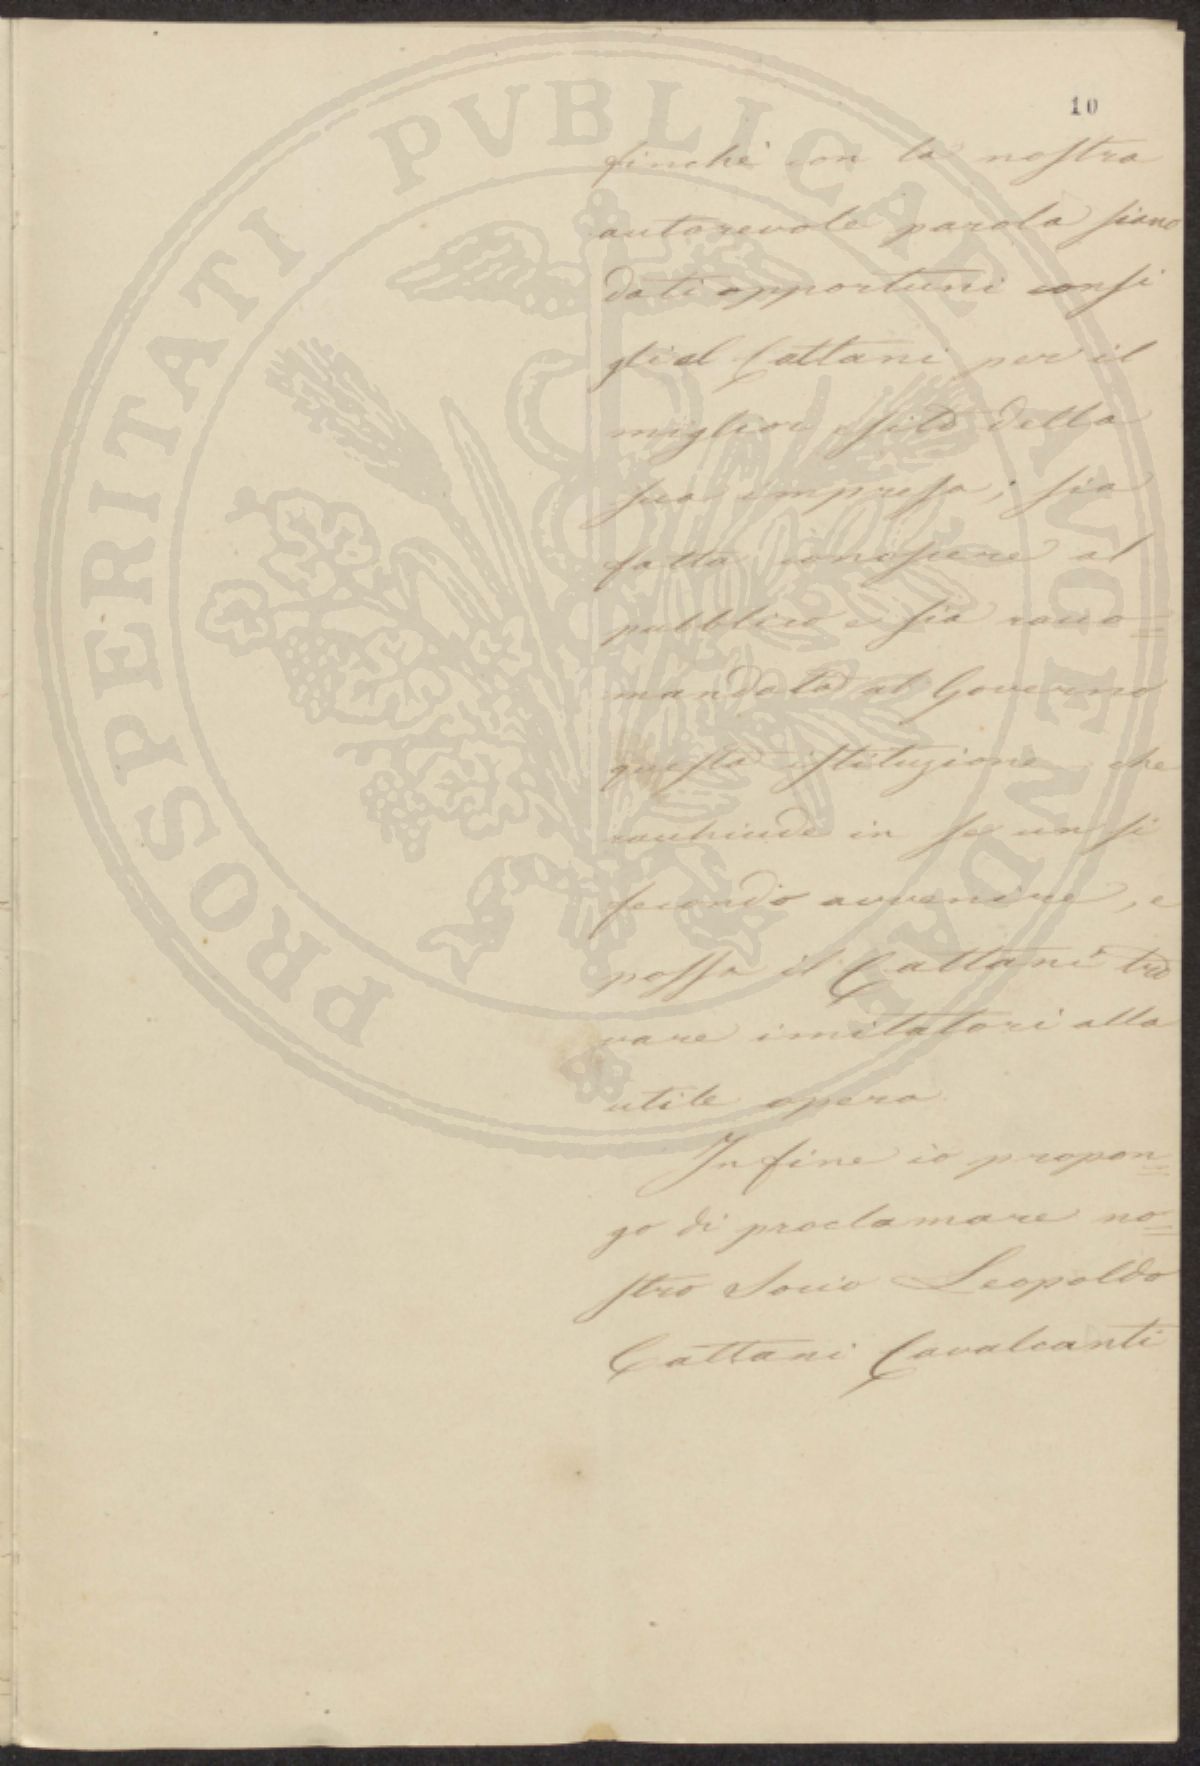 10
finchè con la nostra
autorevole parola siano
dati opportuni consi
gli al Cattani per il
miglior esito della
sua impresa; sia
fatta conoscere al
pubblico e sia racco=
mandata al Governo
questa istituzione che
racchiude in se un si
fecondo avvenire, e
possa il Cattani tro
vare imitatori alla
utile opera
In fine io propon=
go di proclamare no=
stro Socio Leopoldo
Cattani Cavalcanti
PROSPERITATI PVBLICAE AVGENDAE